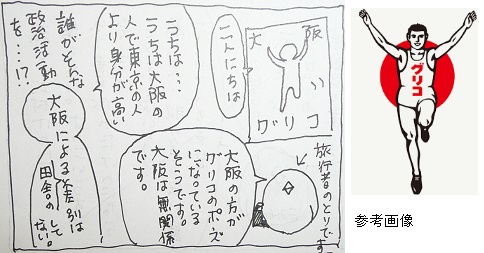 大阪
グリコ
こんにちは
うちは…
うちは大阪の
人で東京の人
より身分が高い
誰がそんな
政治活動
を…!?
旅行者のとりです
大阪の方が
グリコのポーズ
になっている
そうです。
大阪は無関係
です。
大阪による差別は
田舎のして
ない。
グリコ
参考画像